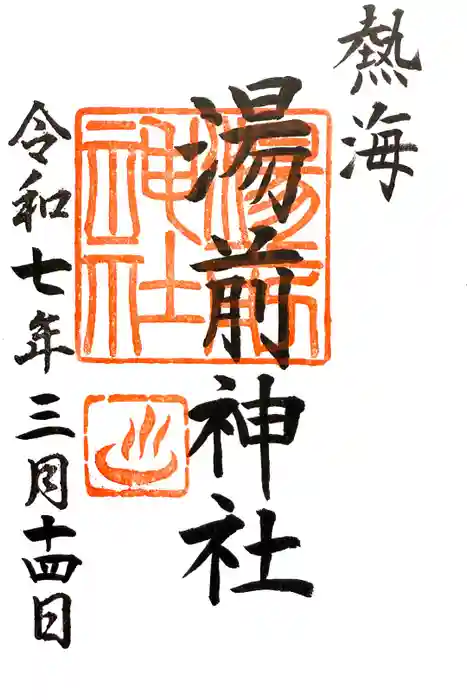 熱海
湯前神社
湯前神社
令和七年三月十四日